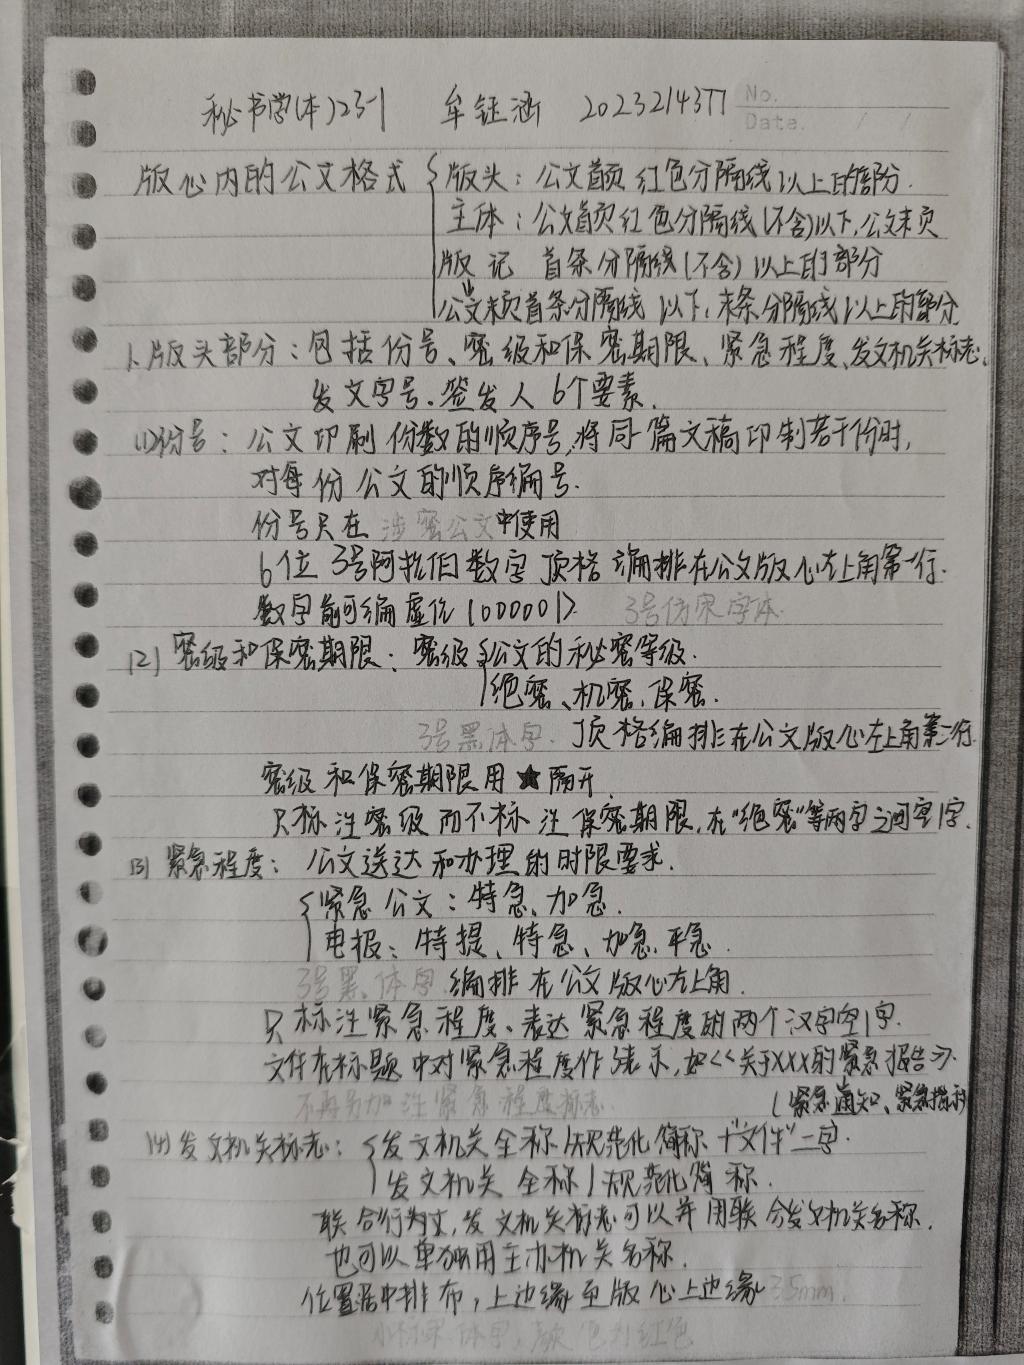 秘书学(本)23-1 牟钰涵 2023214377 No.
Date. / /
版心内的公文格式 版头：公文首页红色分隔线以上的部分.
主体：公文首页红色分隔线(不含)以下,公文末页
版记 首条分隔线(不含)以上的部分
公文末页首条分隔线以下,末条分隔线以上的部分
1.版头部分：包括份号、密级和保密期限、紧急程度、发文机关标志、
发文字号、签发人6个要素.
(1)份号：公文印刷份数的顺序号,将同一篇文稿印制若干份时,
对每份公文的顺序编号.
份号只在涉密公文中使用
6位 3号阿拉伯数字 顶格编排在公文版心左上角第一行.
数字前可编虚位(000001). 3号仿宋字体
(2)密级和保密期限：密级 公文的秘密等级.
绝密、机密、保密.
3号黑体字. 顶格编排在公文版心左上角第二行.
密级和保密期限用★隔开.
只标注密级而不标注保密期限,在"绝密"等两字之间空1字.
(3)紧急程度：公文送达和办理的时限要求.
紧急公文：特急、加急.
电报：特提、特急、加急、平急.
3号黑体字.编排在公文版心左上角.
只标注紧急程度、表达紧急程度的两个汉字空1字.
文件在标题中对紧急程度作了表示,如<<关于XXX的紧急报告>>.
不再另加注紧急程度标志. (紧急通知、紧急指示)
(4)发文机关标志：发文机关全称/规范化简称+"文件"二字.
发文机关全称/规范化简称.
联合行文,发文机关标志可以并用联合发文机关名称.
也可以单独用主办机关名称.
位置居中排布,上边缘至版心上边缘35mm.
小标宋体字,颜色为红色